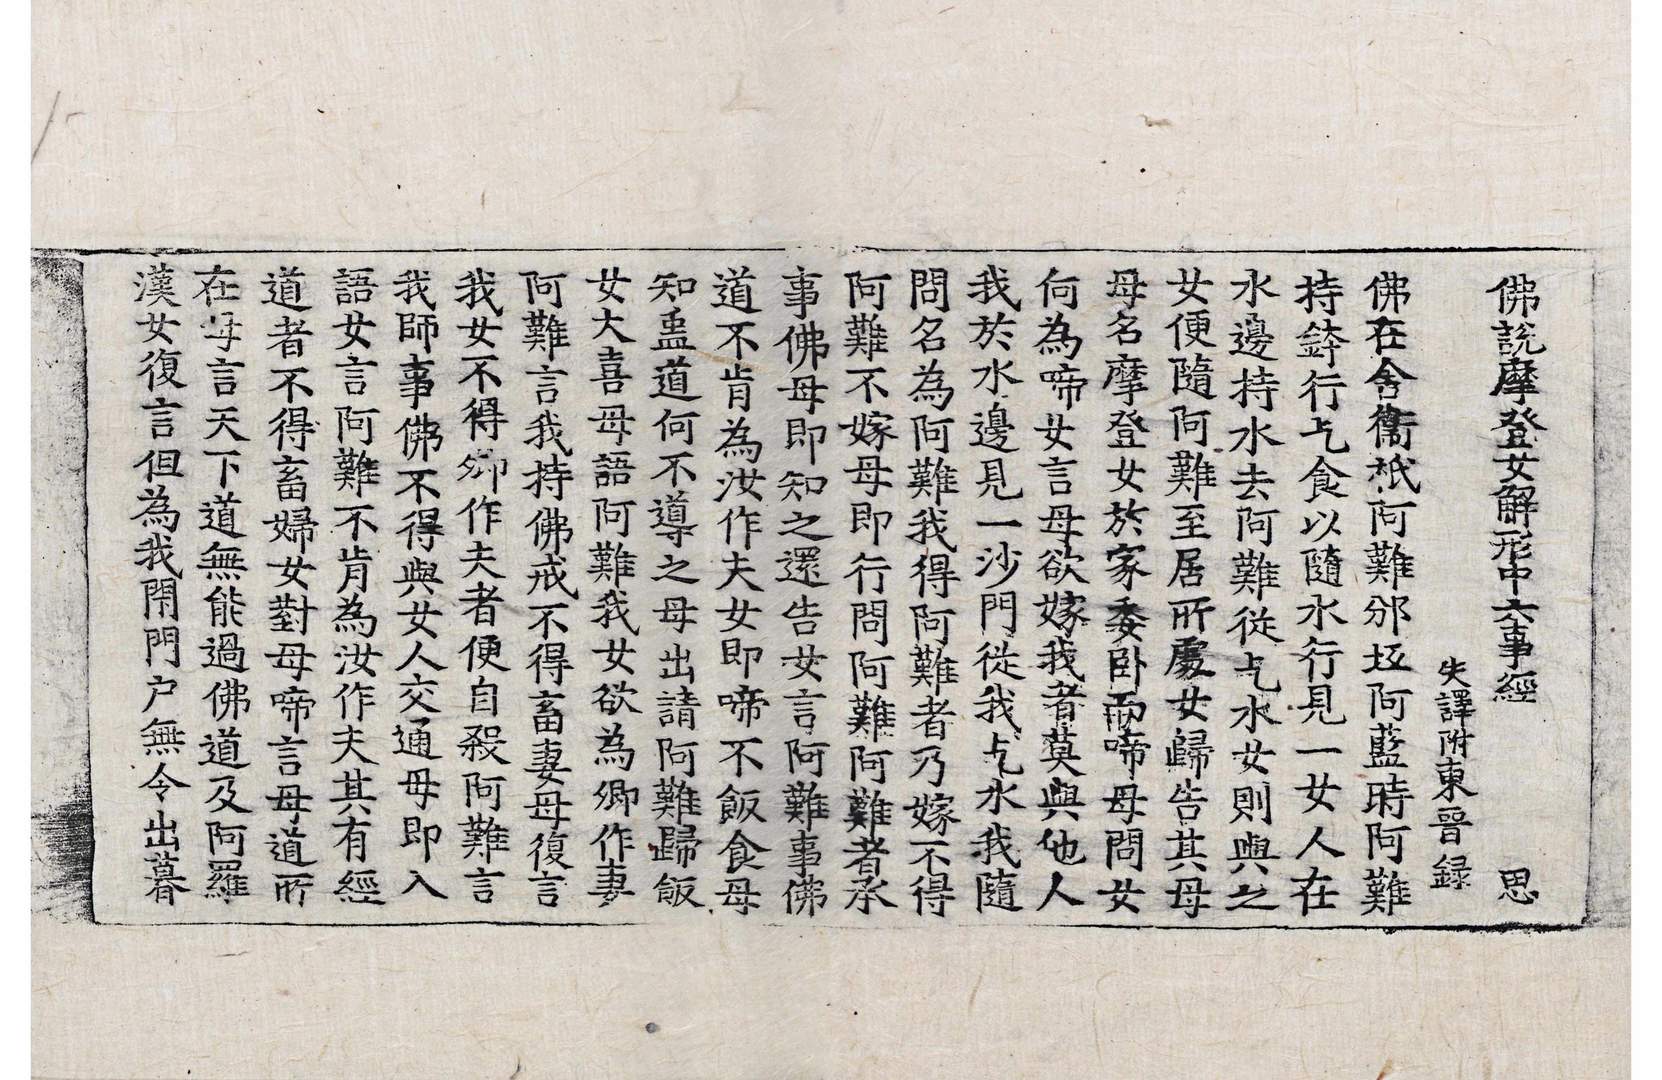 佛說摩登女解形中六事經 思
失譯附東晉録
佛在舍衞祇阿難邠坻阿藍時阿難
持鉢行乞食以隨水行見一女人在
水邊持水去阿難從乞水女則與之
女便隨阿難至居所處女歸告其母
母名摩登女於家委卧而啼母問女
何為啼女言母欲嫁我者莫與他人
我於水邊見一沙門從我乞水我隨
問名為阿難我得阿難者乃嫁不得
阿難不嫁母即行問阿難阿難者承
事佛母即知之還告女言阿難事佛
道不肯為汝作夫女即啼不飯食母
知蠱道何不導之母出請阿難歸飯
女大喜母語阿難我女欲為卿作妻
阿難言我持佛戒不得畜妻母復言
我女不得卿作夫者便自殺阿難言
我師事佛不得與女人交通母即入
語女言阿難不肯為汝作夫其有經
道者不得畜婦女對母啼言母道所
在母言天下道無能過佛道及阿羅
漢女復言但為我閉門户無令出暮